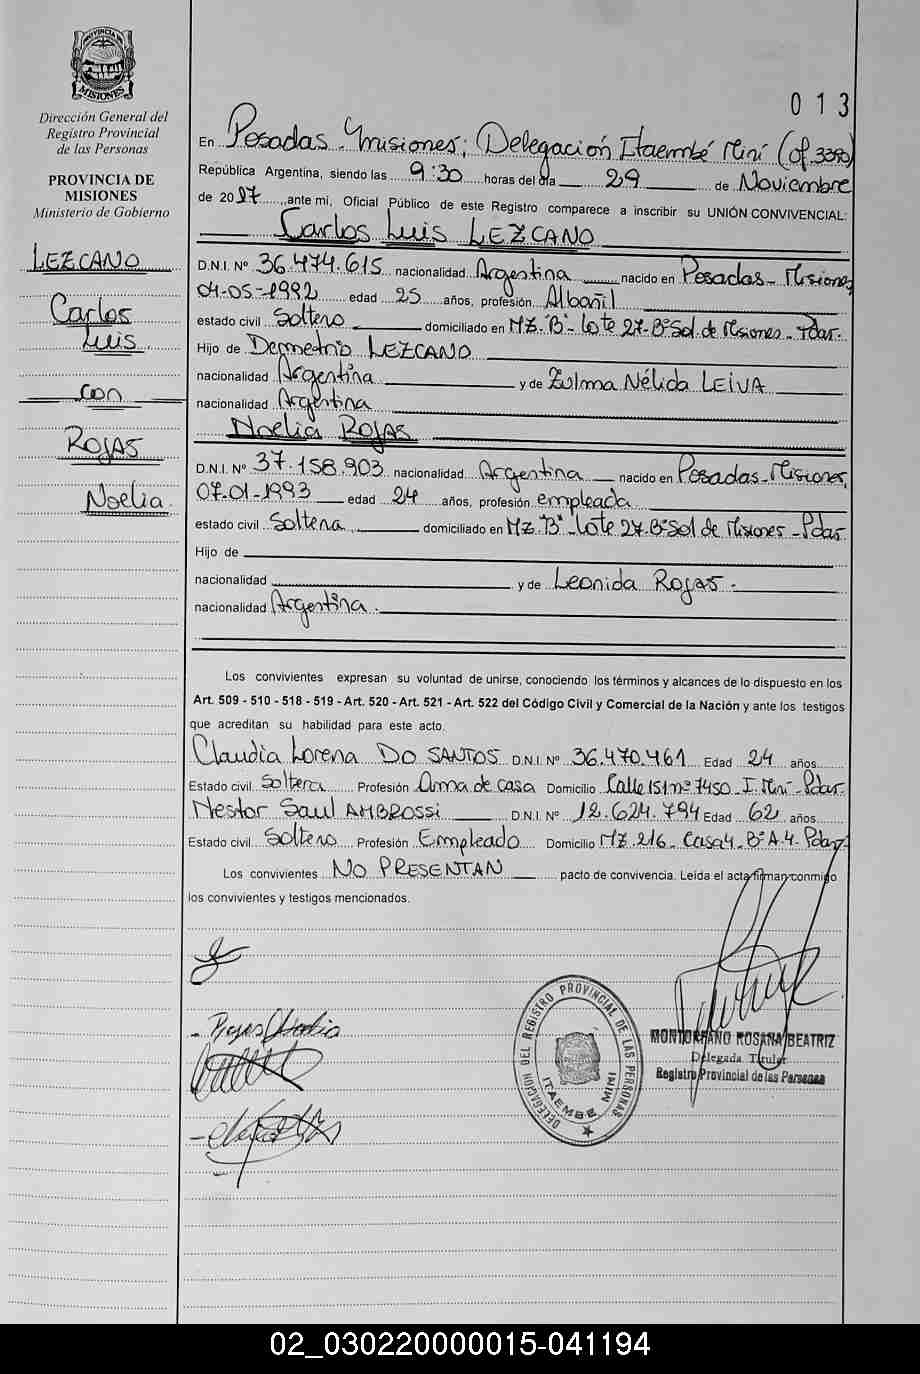 PROVINCIA DE
MISIONES
Dirección General del
Registro Provincial
de las Personas
PROVINCIA DE
MISIONES
Ministerio de Gobierno
LEZCANO
Carlos
Luis
con
ROJAS
Noelia.
013
En Posadas - Misiones; (Delegación Itaembé Miní (of. 3350)
República Argentina, siendo las 9:30 horas del día 29 de Noviembre
de 2017 ante mí, Oficial Público de este Registro comparece a inscribir su UNIÓN CONVIVENCIAL:
Carlos Luis LEZCANO
D.N.I. Nº 36.474.615 nacionalidad Argentina nacido en Posadas - Misiones
04-05-1992 edad 25 años, profesión Albañil
estado civil Soltero domiciliado en MZ. "B" - Lote 27- Bº Sol de Misiones - Pdas.
Hijo de Demetrio LEZCANO
nacionalidad Argentina y de Zulma Nélida LEIVA
nacionalidad Argentina
Noelia ROJAS
D.N.I. Nº 37.158.903 nacionalidad Argentina nacido en Posadas - Misiones,
07-01-1993 edad 24 años, profesión empleada
estado civil Soltera domiciliado en MZ. "B" - Lote 27- Bº Sol de Misiones - Pdas.
Hijo de
nacionalidad y de Leonida ROJAS.-
nacionalidad Argentina.
Los convivientes expresan su voluntad de unirse, conociendo los términos y alcances de lo dispuesto en los
Art. 509 - 510 - 518 - 519 - Art. 520 - Art. 521 - Art. 522 del Código Civil y Comercial de la Nación y ante los testigos
que acreditan su habilidad para este acto.
Claudia Lorena DO SANTOS D.N.I. Nº 36.470.461 Edad 24 años
Estado civil Soltera Profesión Ama de casa Domicilio Calle 151 nº 7450 - I. Miní - Pdas.
Nestor Saul AMBROSSI D.N.I. Nº 12.624.794 Edad 62 años
Estado civil Soltero Profesión Empleado Domicilio MZ. 216 - Casa 4 - Bº A.4. Pdas.
Los convivientes NO PRESENTAN pacto de convivencia. Leída el acta firman conmigo
los convivientes y testigos mencionados.
- Rojas Noelia
DELEGACIÓN DEL REGISTRO PROVINCIAL DE LAS PERSONAS
ITAEMBE MINI
MONTORFANO ROSANA BEATRIZ
Delegada Titular
Registro Provincial de las Personas
02_030220000015-041194